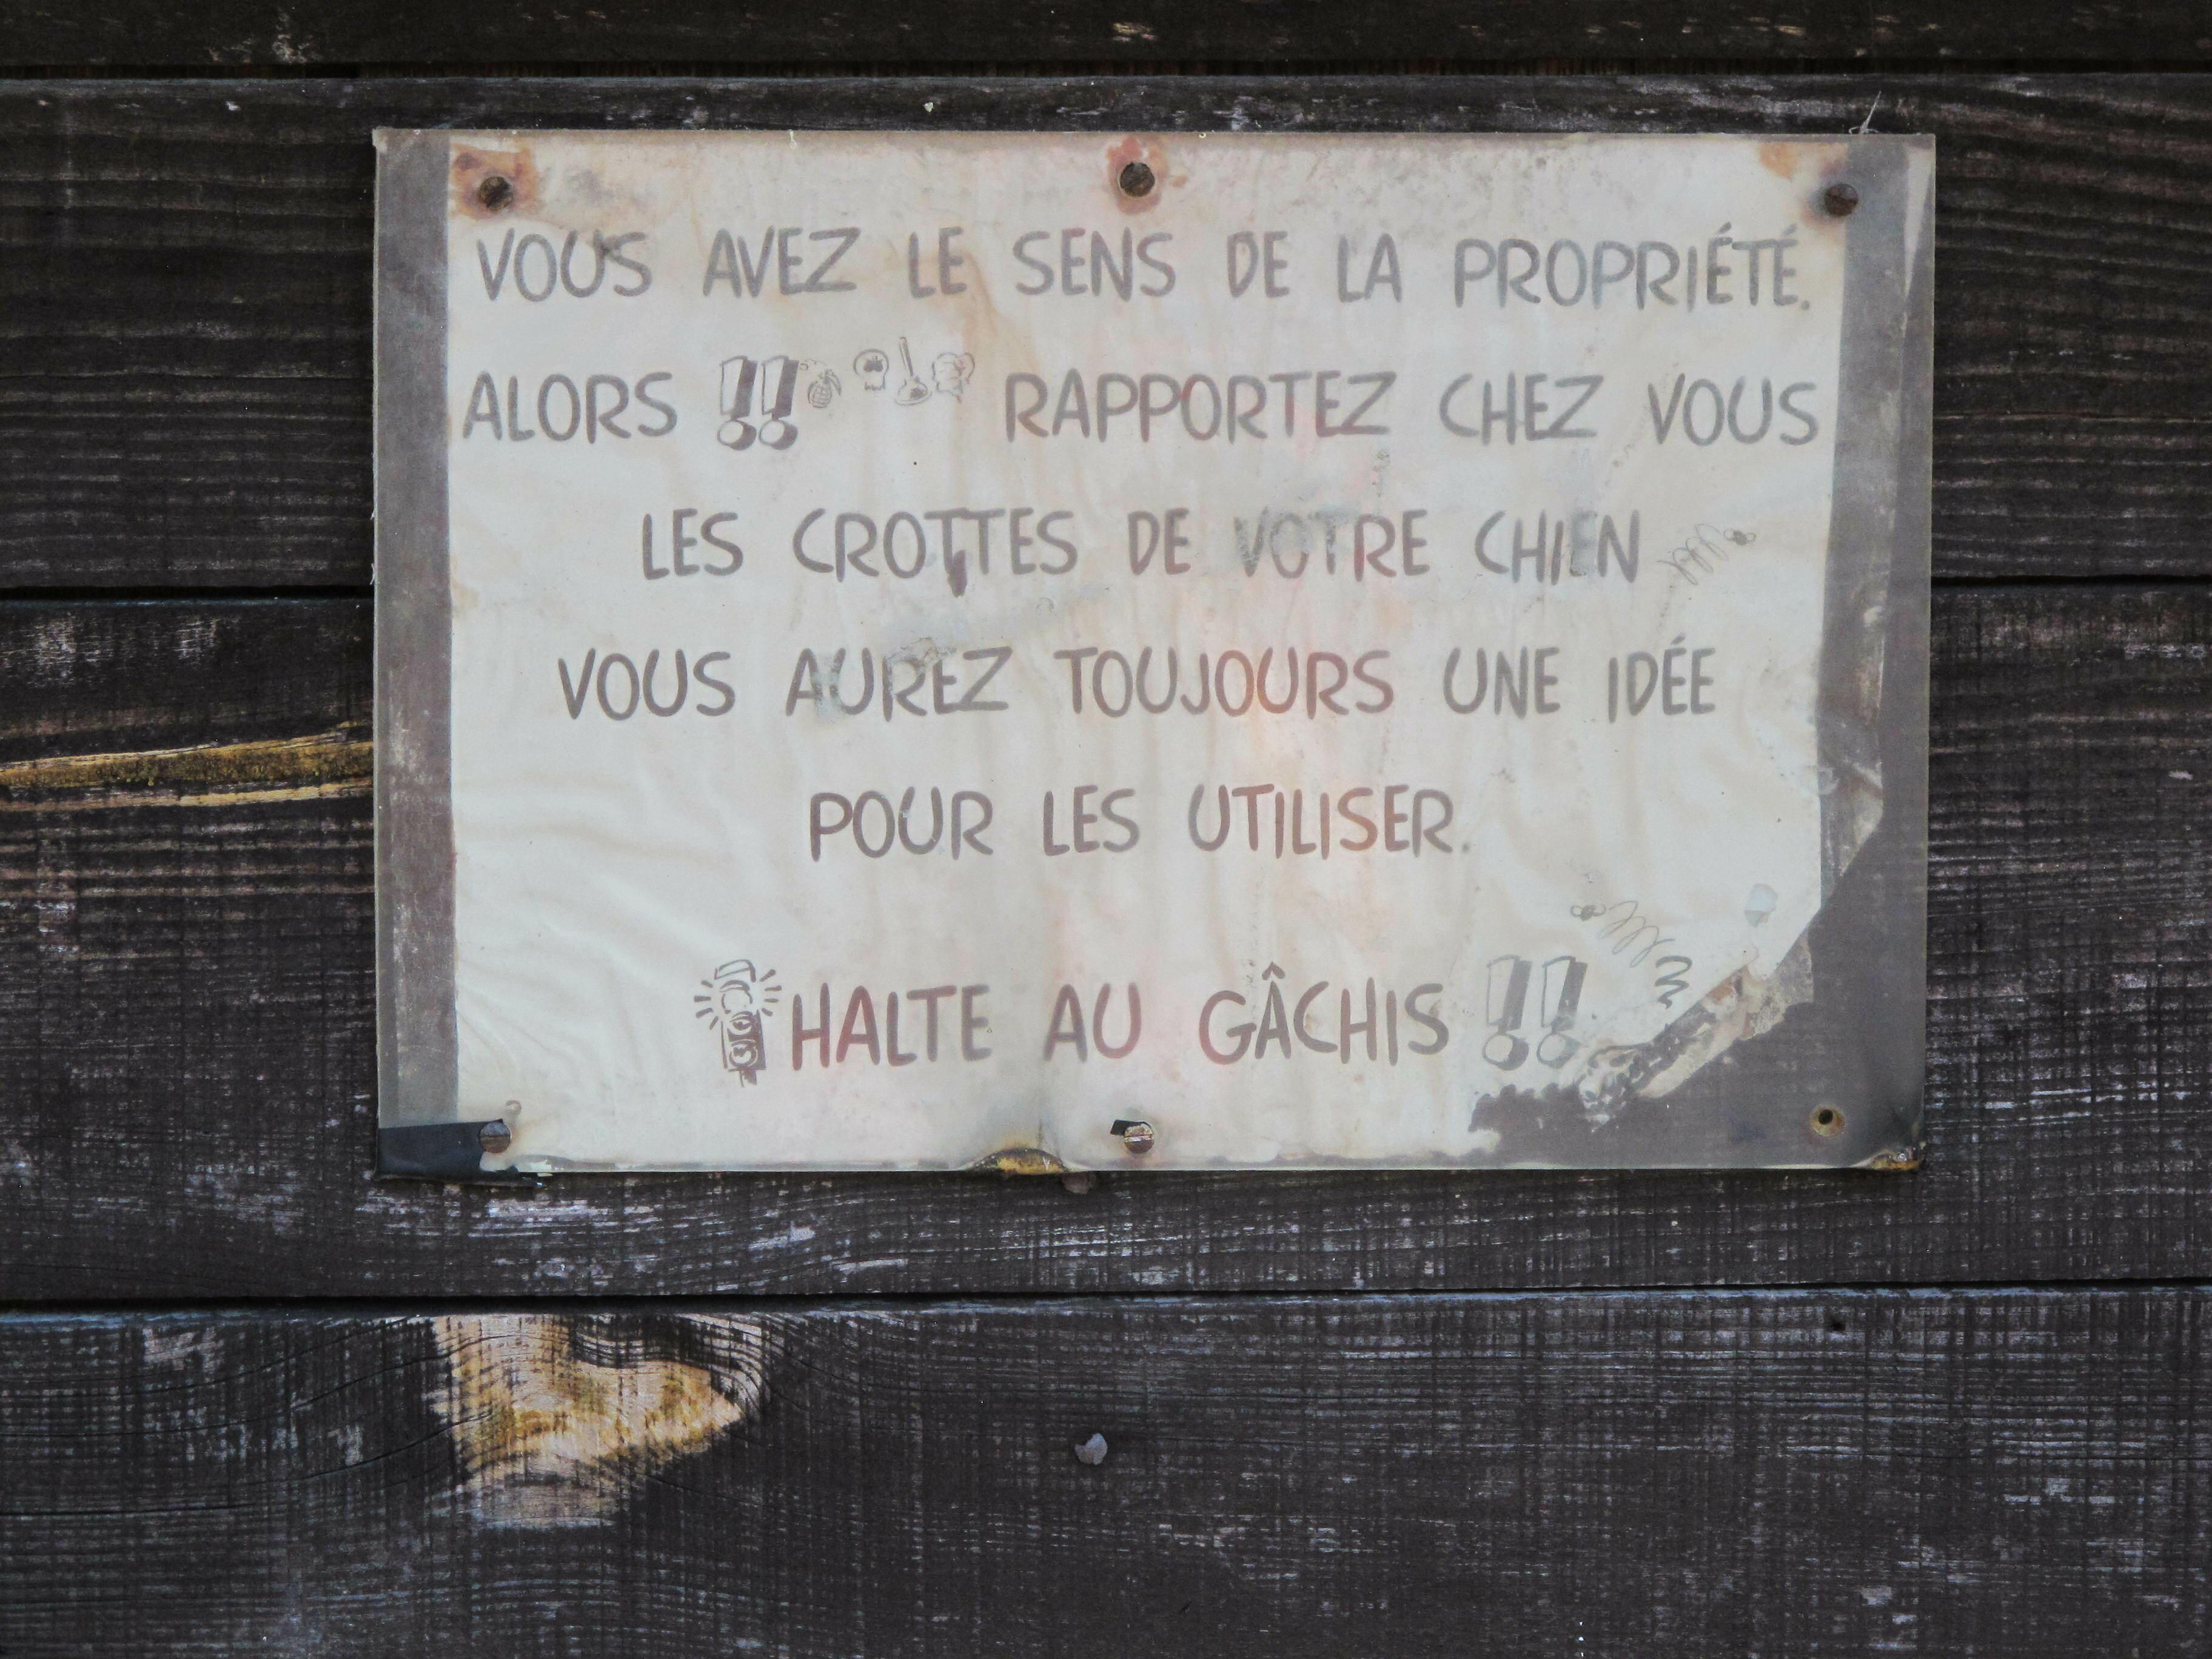 VOUS AVEZ LE SENS DE LA PROPRIÉTÉ.
ALORS !! RAPPORTEZ CHEZ VOUS
LES CROTTES DE VOTRE CHIEN
VOUS AUREZ TOUJOURS UNE IDÉE
POUR LES UTILISER.
HALTE AU GÂCHIS !!